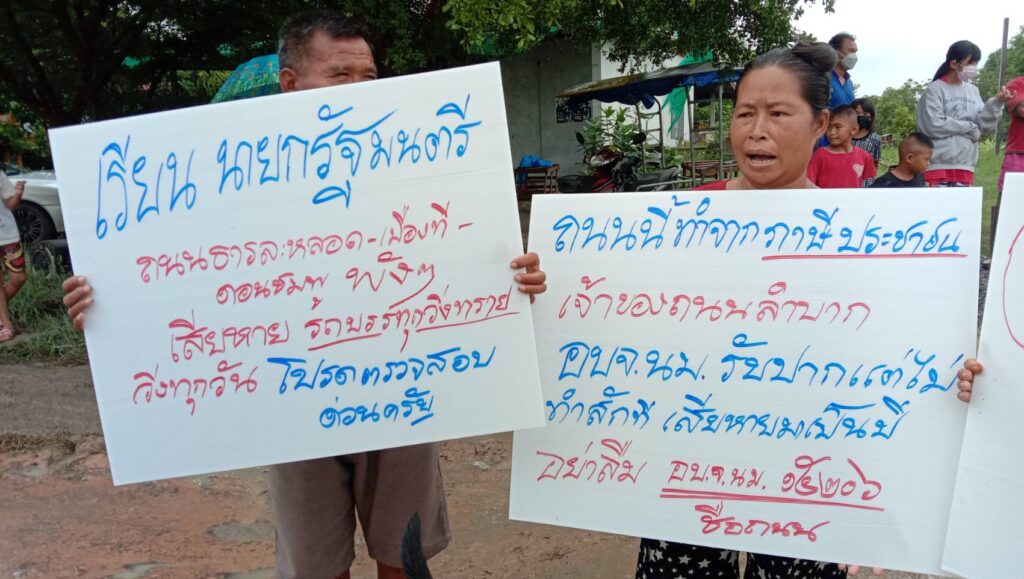 เรียน นายกรัฐมนตรี
ที่
ถนนธารละหลอด-เมืองที-
ดอนชมพู พังๆ
เสียหาย รถบรรทุกวิ่งทราย
วิ่งทุกวัน โปรดตรวจสอบ
ด่วนครับ
ถนนนี้ทำจากภาษีประชาชน
เจ้าของถนนลำบาก
อบจ.นม. รับปากแต่ไม่
ทำสักที เสียหายมาเป็นปี
อย่าลืม อบ.จ.นม. ๑๕๒๐๖
ชื่อถนน